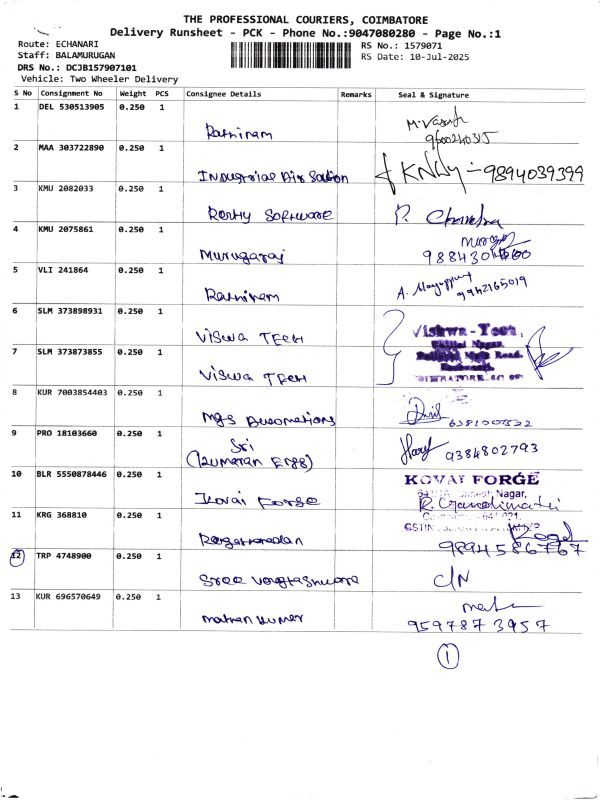 THE PROFESSIONAL COURIERS, COIMBATORE
Delivery Runsheet - PCK - Phone No.:9047080280 - Page No.:1
Route: ECHANARI
RS No.: 1579071
Staff: BALAMURUGAN
RS Date: 10-Jul-2025
DRS No.: DCJB157907101
Vehicle: Two Wheeler Delivery
S No Consignment No Weight PCS Consignee Details Remarks Seal & Signature
1 DEL 530513905 0.250 1
Rathinam
9600240315
2 MAA 303722890 0.250 1
Industrial 9894039399
3 KMU 2082033 0.250 1
Software R. Chandra
4 KMU 2075861 0.250 1
Murugaraj
5 VLI 241864 0.250 1
Rathinam A. 9942165019
6 SLM 373898931 0.250 1
Viswa Tech Vishwa-Tech,
7 SLM 373873855 0.250 1
Road.
Viswa Tech
8 KUR 7003854403 0.250 1
Mgs
9 PRO 18103660 0.250 1
Sri
(Kumaran Engg) 9384802793
10 BLR 5550878446 0.250 1
KOVAI FORGE
Nagar,
Kovai Forge R.
11 KRG 368810 0.250 1
GSTIN
9894586767
12 TRP 4748900 0.250 1
Sree C/N
13 KUR 696570649 0.250 1
Mathan Kumar
959787 3957
1